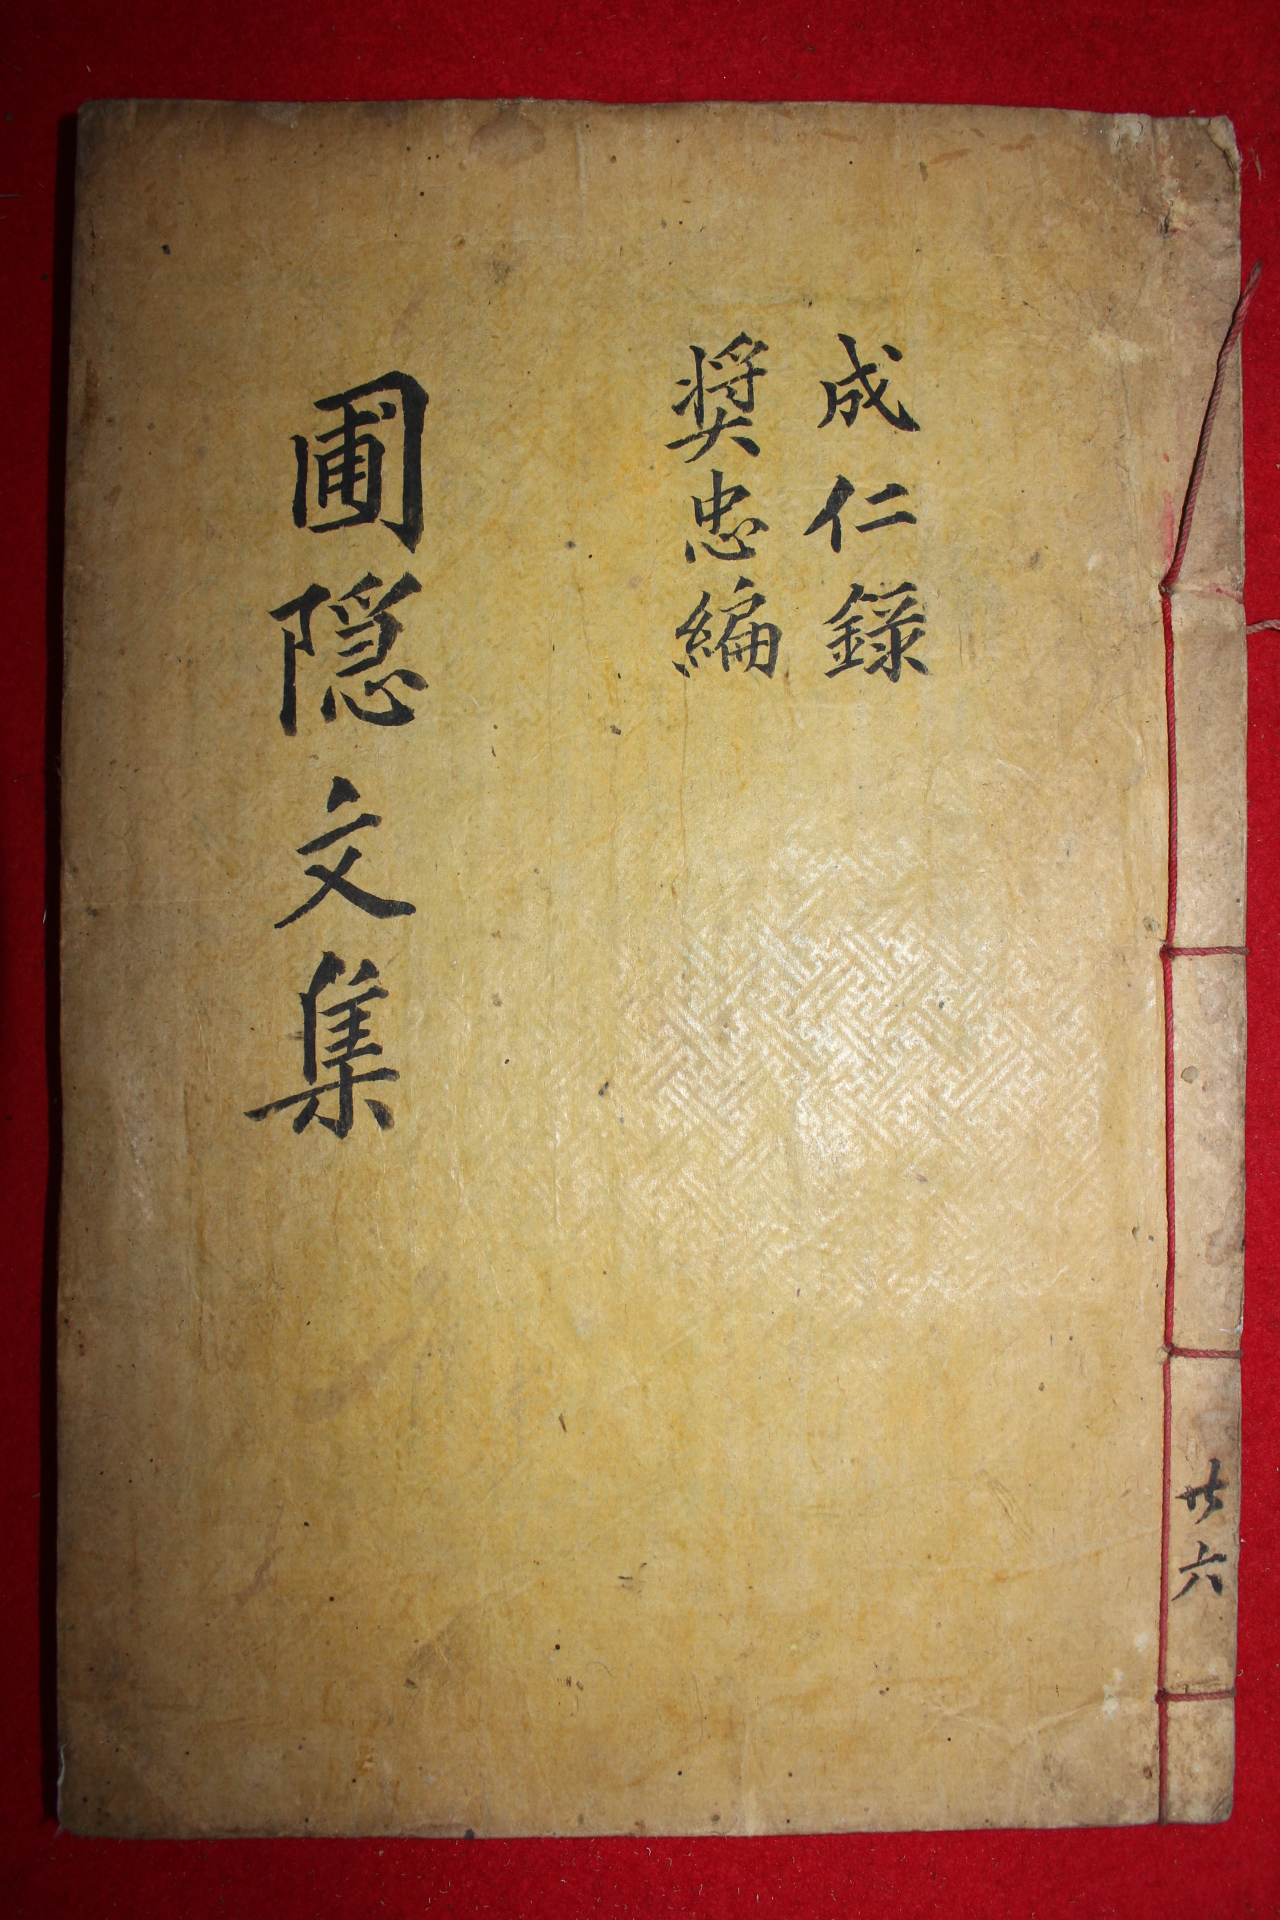 成仁錄
奬忠編
圃隠文集
廿六